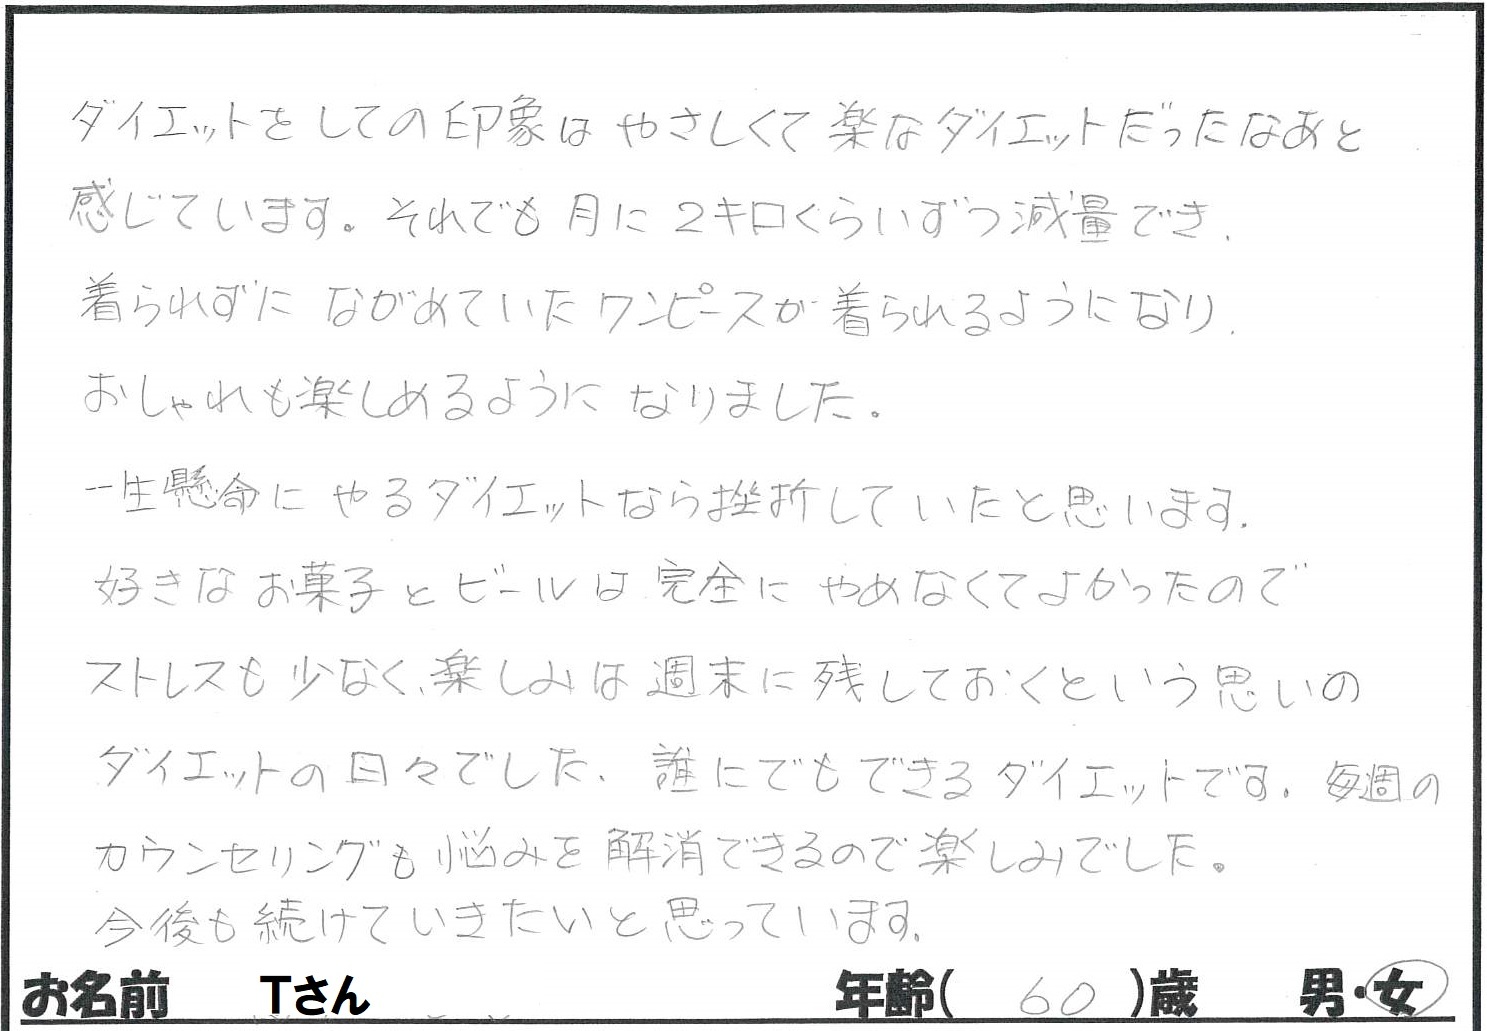 ダイエットをしての印象はやさしくて楽なダイエットだったなあと
感じています。それでも月に2キロくらいずつ減量でき、
着られずにながめていたワンピースが着られるようになり、
おしゃれも楽しめるようになりました。
一生懸命にやるダイエットなら挫折していたと思います。
好きなお菓子とビールは完全にやめなくてよかったので
ストレスも少なく、楽しみは週末に残しておくという思いの
ダイエットの日々でした、誰にでもできるダイエットです。毎週の
カウンセリングも悩みを解消できるので楽しみでした。
今後も続けていきたいと思っています。
お名前 Tさん 年齢( 60 )歳 男・女